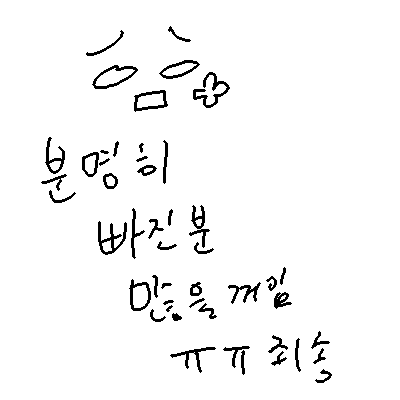 분명히
빠진분
많을꺼임
ㅠㅠ죄송